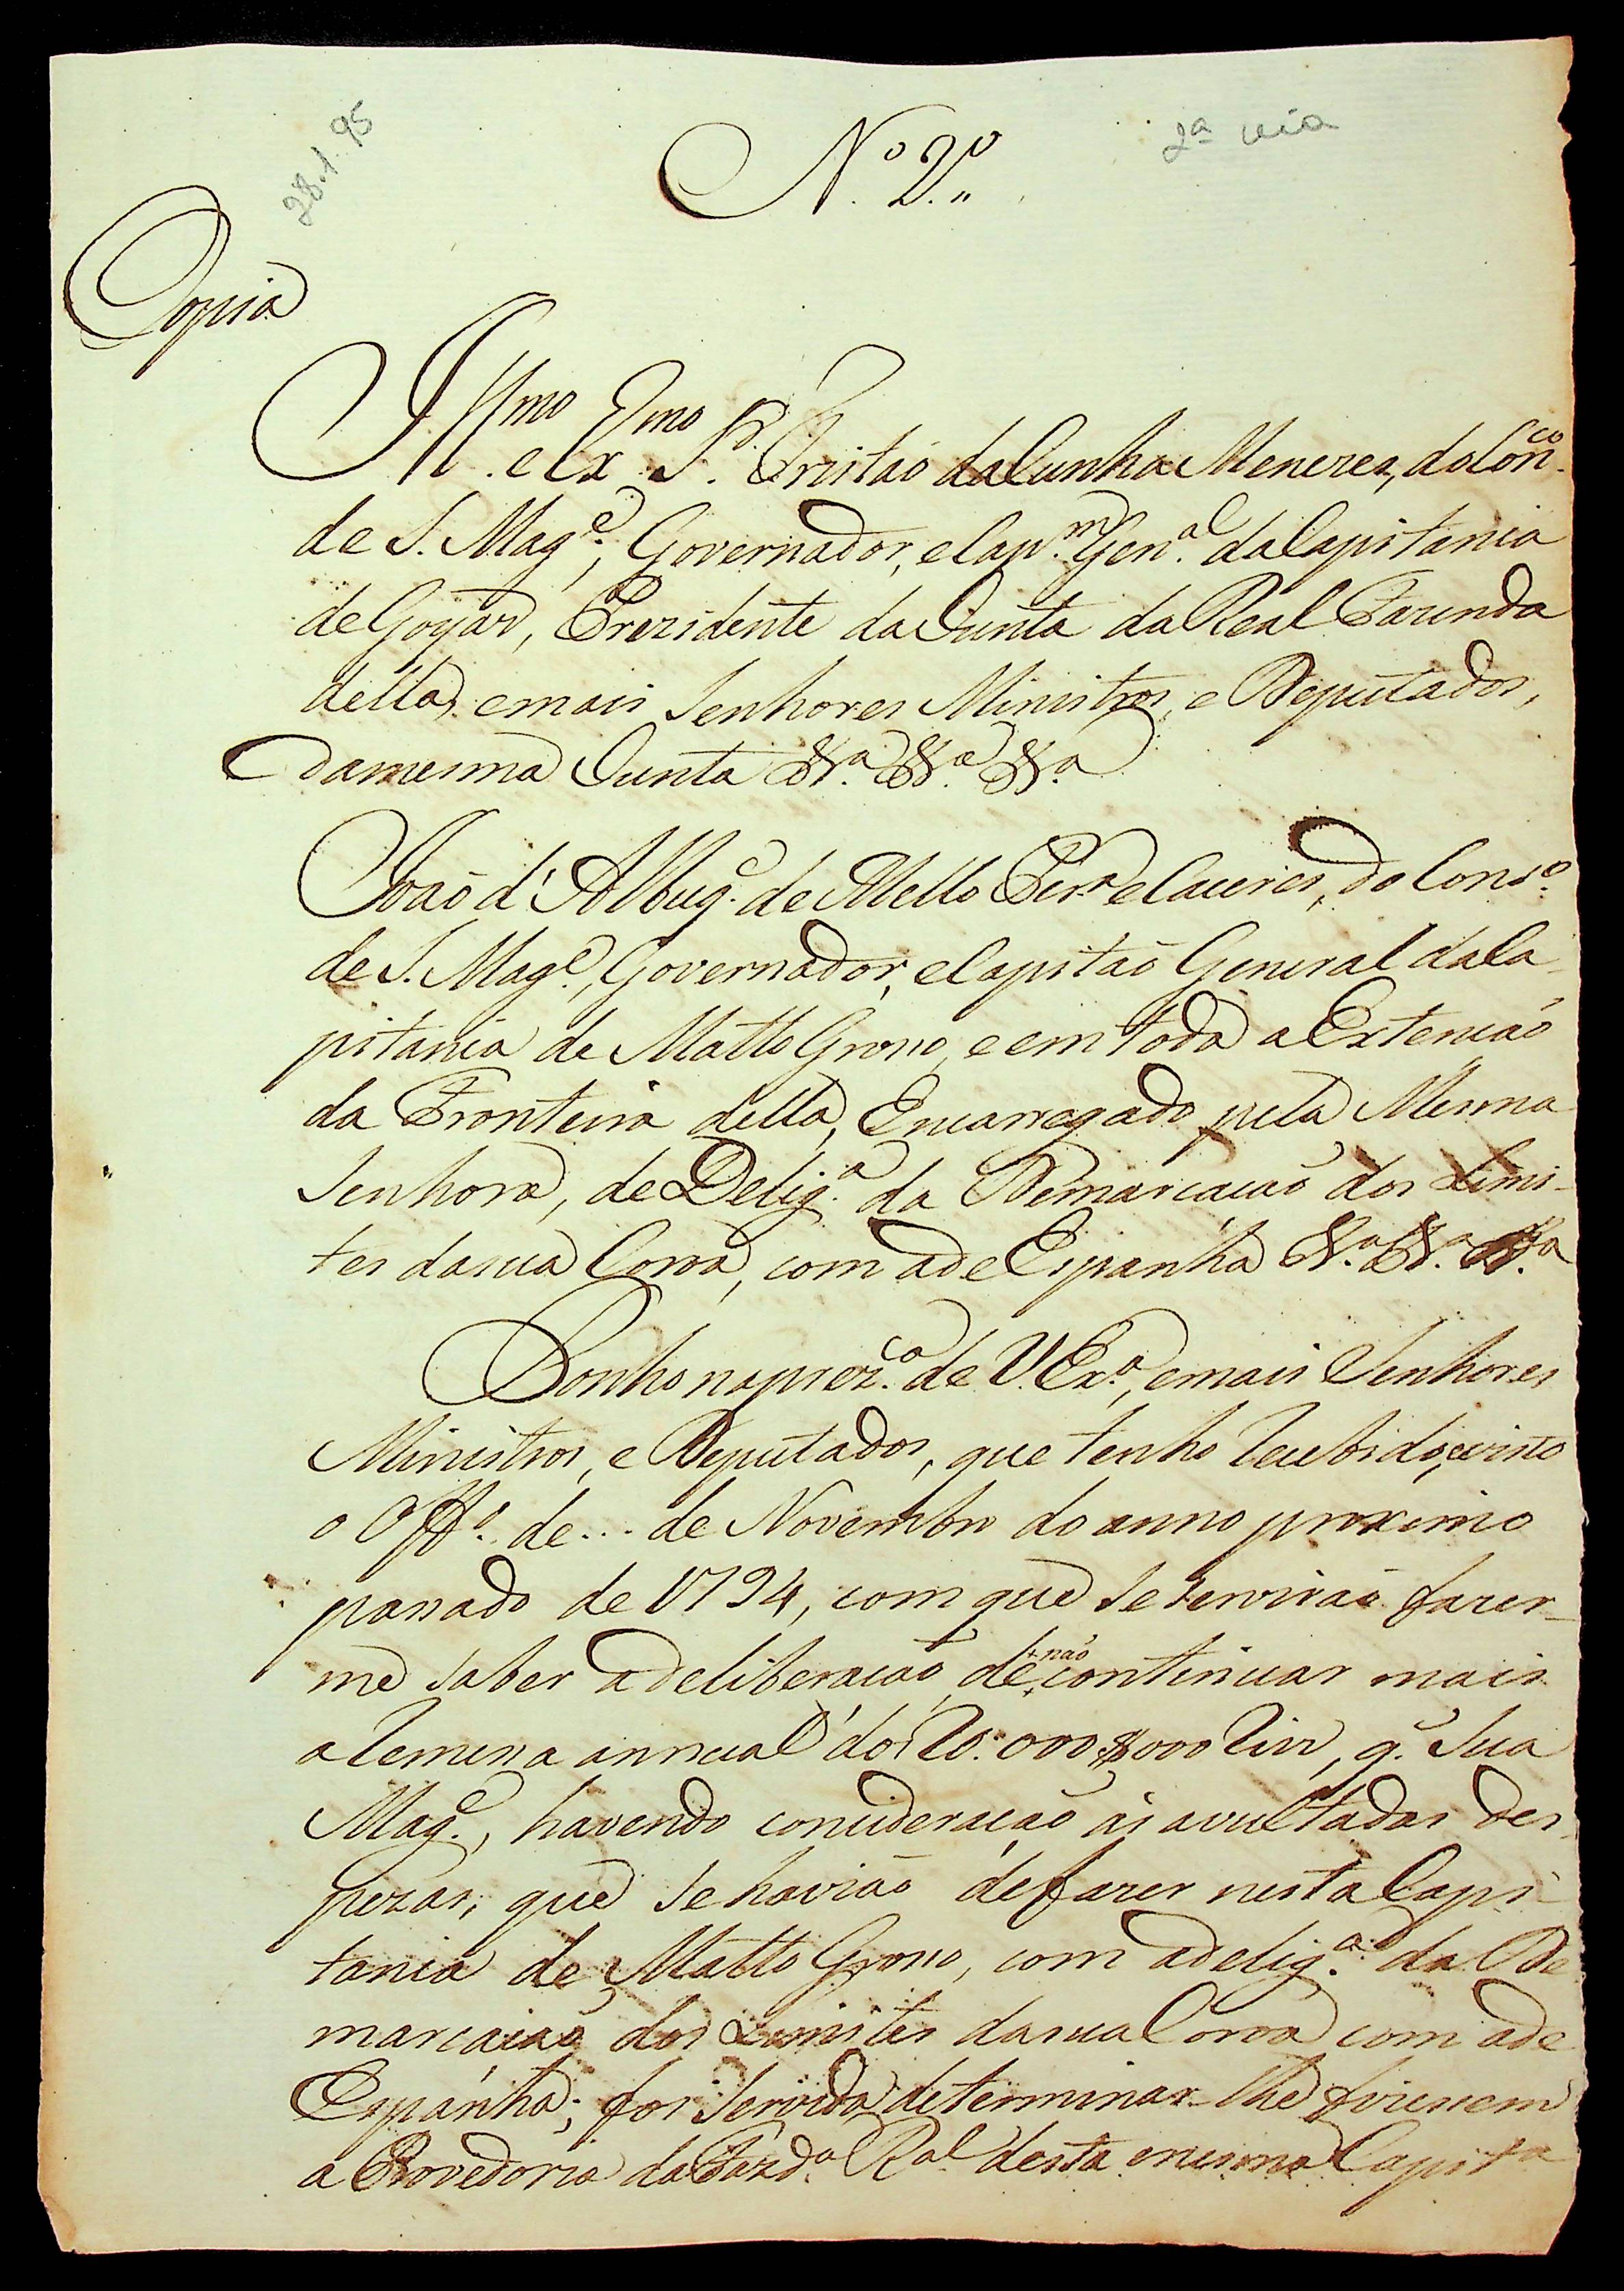 28.1.95
N.º 2.º„
2ª via
Copia
Illmo e Exmo Sr. Tristão da Cunha Menezes, do Conco
de S. Mage., Governador, e Capm. Genal. da Capitania
de Goyáz, Prezidente da Junta da Real Fazenda
della, e mais Senhores Ministros, e Deputados,
da mesma Junta &.ª &.ª &.ª
João d'Albuqe. de Mello Pera e Caceres, do Conso.
de S. Mage., Governador, e Capitão General da Ca-
pitania de Matto Grosso, e em toda a Extenção
da Fronteira della, Encarregado pela Mesma
Senhora, de Delig.ª da Demarcação dos Limi-
tes da sua Coroa, com a de Espanha &.ª &.ª &.ª
Ponho na prez.ça de V. Ex.ª, e mais Senhores
Ministros, e Deputados, que tenho recebido, e visto
o Offo. de... de Novembro do anno proximo
passado de 1794, com que se servirão fazer-
me saber a deliberação, de não continuar mais
a remessa annual dos 20:000$000 reis, q̃. Sua
Mage., havendo consideração ás avultadas des-
pezas, que se havião de fazer nesta Capi-
tania de Matto Grosso, com a delig.ª da De-
marcação dos Limites da sua Coroa com a de
Espánha; foi Servida determinar-lhe fizessem
a Provedoria da Fazd.ª Ral desta mesma Capit.ª